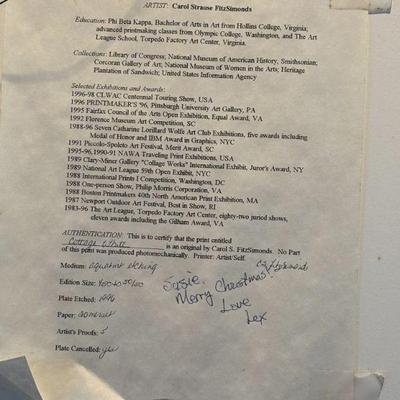 ARTIST: Carol Strause FitzSimonds
Education: Phi Beta Kappa, Bachelor of Arts in Art from Hollins College, Virginia;
advanced printmaking classes from Olympic College, Washington, and The Art
League School, Torpedo Factory Art Center, Virginia.
Collections: Library of Congress; National Museum of American History, Smithsonian;
Corcoran Gallery of Art; National Museum of Women in the Arts; Heritage
Plantation of Sandwich; United States Information Agency
Selected Exhibitions and Awards:
1996-98 CLWAC Centennial Touring Show, USA
1996 PRINTMAKER'S '96, Pittsburgh University Art Gallery, PA
1995 Fairfax Council of the Arts Open Exhibition, Equal Award, VA
1992 Florence Museum Art Competition, SC
1988-96 Seven Catharine Lorillard Wolfe Art Club Exhibitions, five awards including
Medal of Honor and IBM Award in Graphics, NYC
1991 Piccolo-Spoleto Art Festival, Merit Award, SC
1995-96,1990-91 NAWA Traveling Print Exhibitions, USA
1989 Clary-Miner Gallery "Collage Works" International Exhibit, Juror's Award, NY
1989 National Art League 59th Open Exhibit, NYC
1988 International Prints I Competition, Washington, DC
1988 One-person Show, Philip Morris Corporation, VA
1988 Boston Printmakers 40th North American Print Exhibition, MA
1987 Newport Outdoor Art Festival, Best in Show, RI
1983-96 The Art League, Torpedo Factory Art Center, eighty-two juried shows,
eleven awards including the Gilham Award, VA
AUTHENTICATION: This is to certify that the print entitled
Cottage is an original by Carol S. FitzSimonds. No Part
of this print was produced photomechanically. Printer: Artist/Self.
Medium: aquatint etching
Edition Size:
Plate Etched: 1996
Paper: somerset
Artist's Proofs: 5
Plate Cancelled: yes
Susie,
Merry Christmas!
Love
Lex